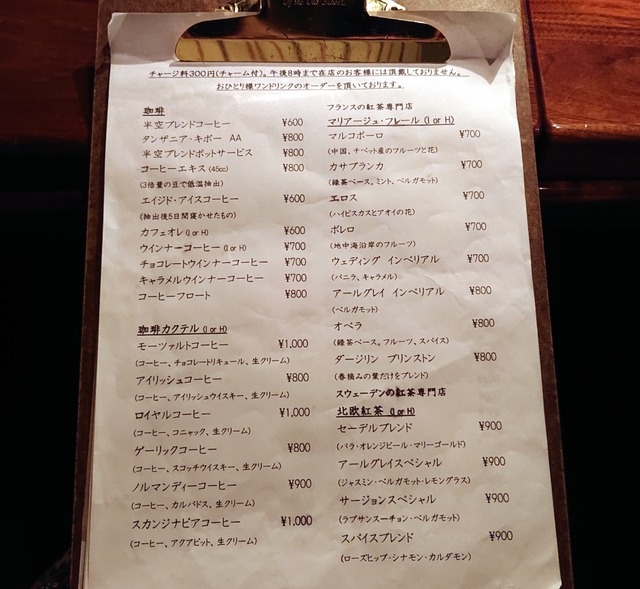 チャージ料300円(チャーム付)。午後8時まで在店のお客様には頂戴しておりません。
おひとり様ワンドリンクのオーダーを頂いております。
珈琲
半空ブレンドコーヒー ¥600
タンザニア・キボー AA ¥800
半空ブレンドポットサービス ¥800
コーヒーエキス(45cc) ¥800
(3倍量の豆で低温抽出)
エイジド・アイスコーヒー ¥600
(抽出後5日間寝かせたもの)
カフェオレ(I or H) ¥600
ウインナーコーヒー(I or H) ¥700
チョコレートウインナーコーヒー ¥700
キャラメルウインナーコーヒー ¥700
コーヒーフロート ¥800
珈琲カクテル(I or H)
モーツァルトコーヒー ¥1,000
(コーヒー、チョコレートリキュール、生クリーム)
アイリッシュコーヒー ¥800
(コーヒー、アイリッシュウイスキー、生クリーム)
ロイヤルコーヒー ¥1,000
(コーヒー、コニャック、生クリーム)
ゲーリックコーヒー ¥800
(コーヒー、スコッチウイスキー、生クリーム)
ノルマンディーコーヒー ¥900
(コーヒー、カルバドス、生クリーム)
スカンジナビアコーヒー ¥1,000
(コーヒー、アクアビット、生クリーム)
フランスの紅茶専門店
マリアージュ・フレール(I or H)
マルコポーロ ¥700
(中国、チベット産のフルーツと花)
カサブランカ ¥700
(緑茶ベース。ミント、ベルガモット)
エロス ¥700
(ハイビスカスとアオイの花)
ボレロ ¥700
(地中海沿岸のフルーツ)
ウェディング インペリアル ¥700
(バニラ、キャラメル)
アールグレイ インペリアル ¥800
(ベルガモット)
オペラ ¥800
(緑茶ベース。フルーツ、スパイス)
ダージリン プリンストン ¥800
(春摘みの葉だけをブレンド)
スウェーデンの紅茶専門店
北欧紅茶(I or H)
セーデルブレンド ¥900
(バラ・オレンジピール・マリーゴールド)
アールグレイスペシャル ¥900
(ジャスミン・ベルガモット・レモングラス)
サージョンスペシャル ¥900
(ラプサンスーチョン・ベルガモット)
スパイスブレンド ¥900
(ローズヒップ・シナモン・カルダモン)